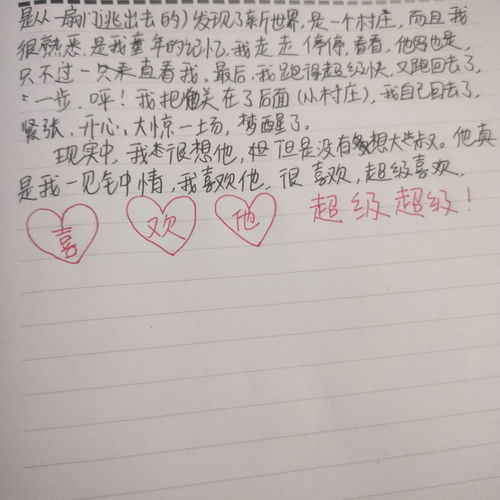 是从一扇门逃出去的）发现了新世界，是一个村庄，而且我
很熟悉，是我童年的记忆，我走走停停，看看，他也是，
只不过一只来直看我。最后，我跑得超级快，又跑回去了，
一步，呼！我把他关在了后面（从村庄），我自己回去了，
紧张，开心，大惊一场，梦醒了。
现实中，我很想他，但是没有想大叔。他真
是我一见钟情，我喜欢他，很喜欢，超级喜欢，
喜 欢 他 超级超级！